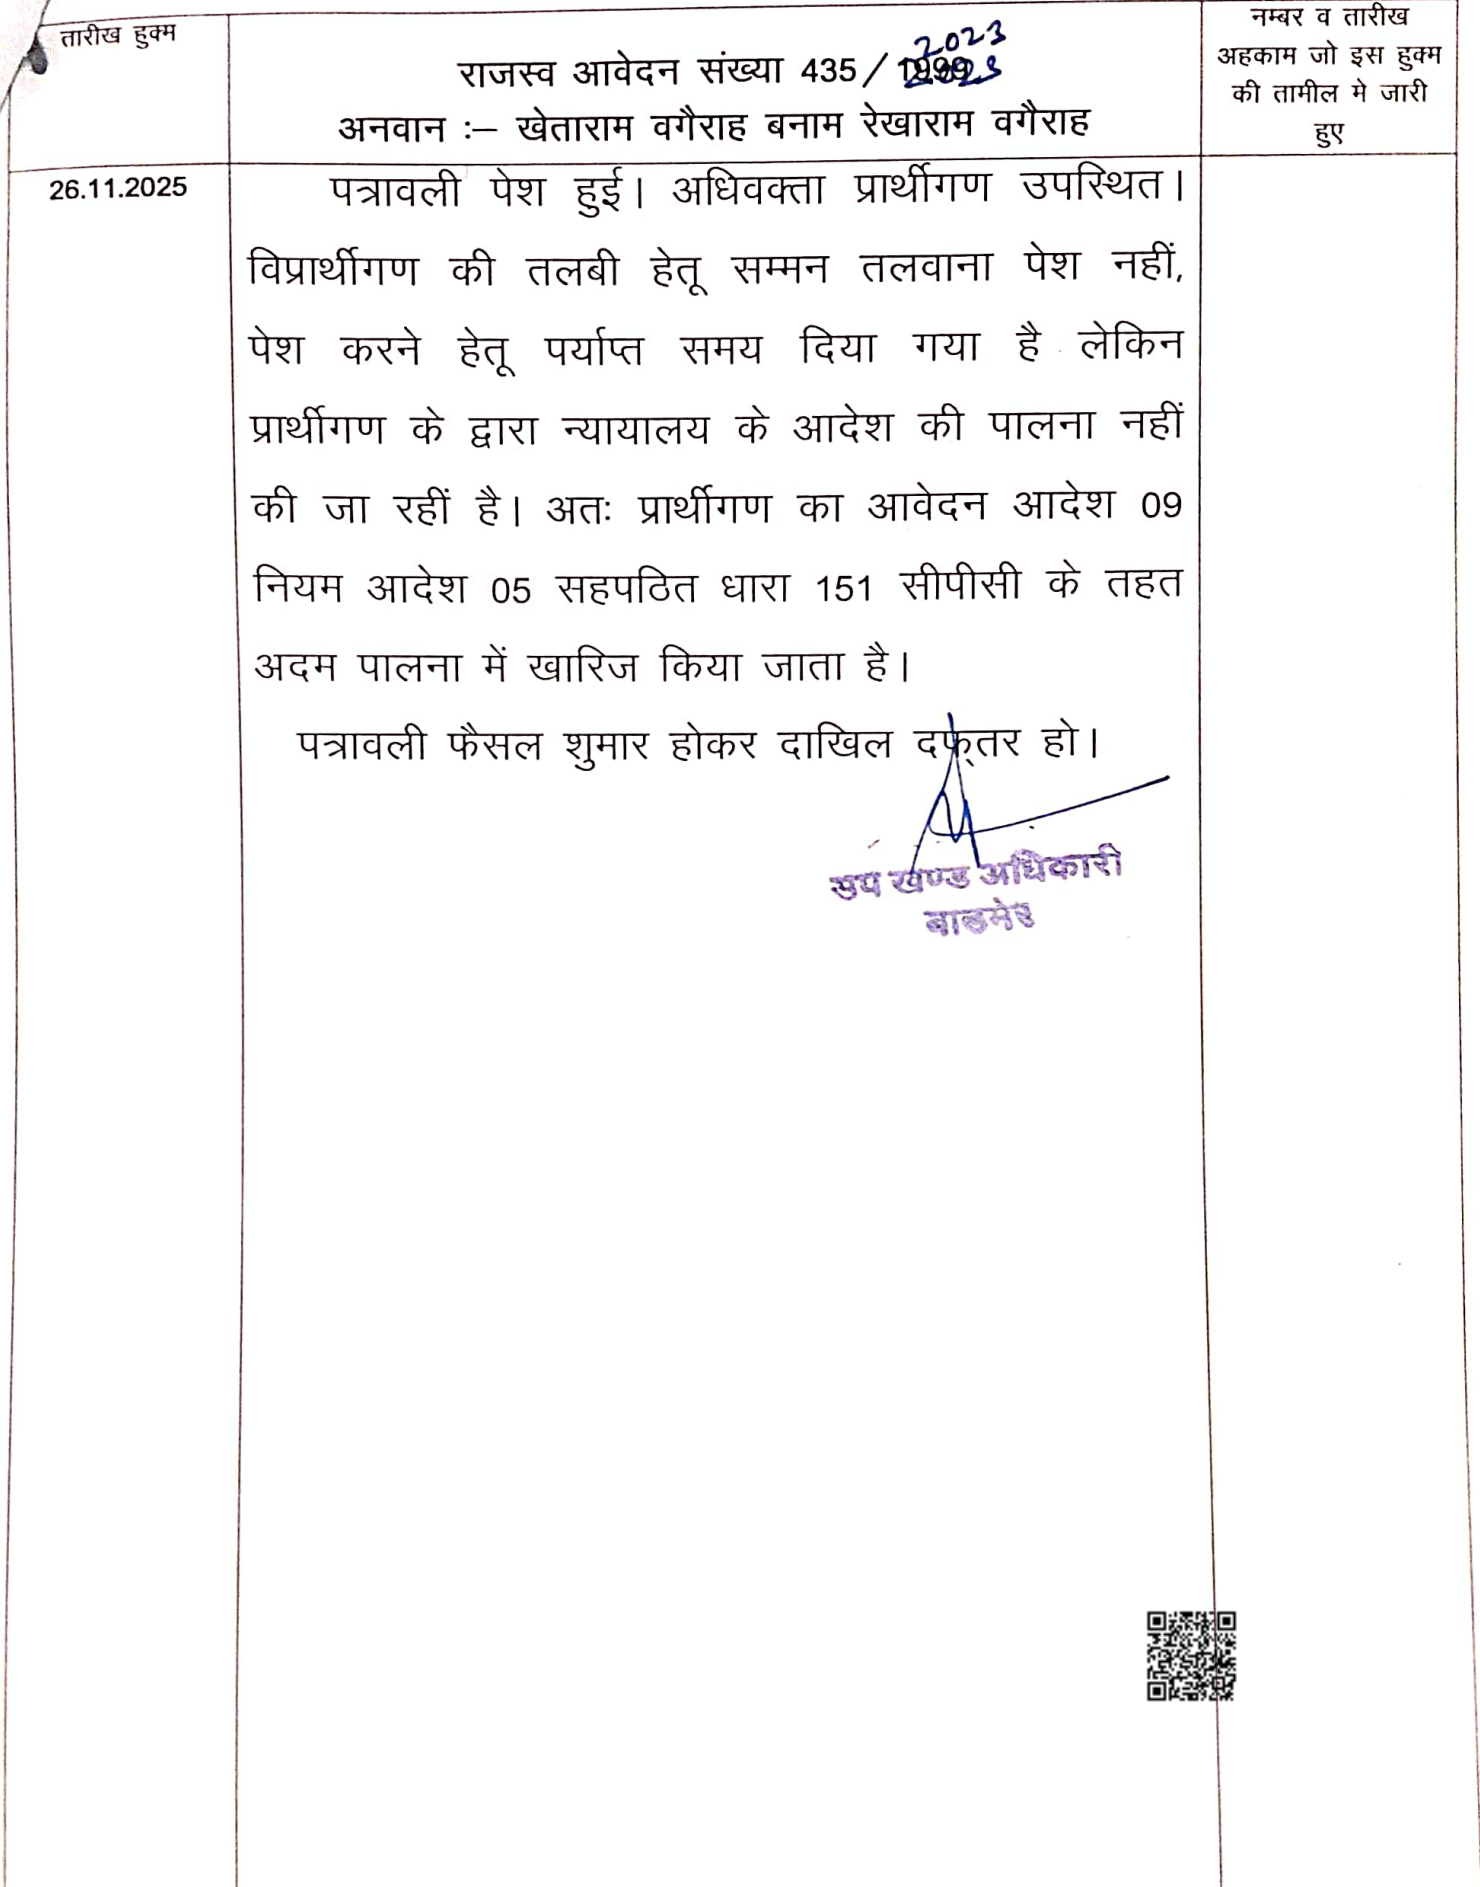 तारीख हुक्म
राजस्व आवेदन संख्या 435/ 2023
अनवान :– खेताराम वगैराह बनाम रेखाराम वगैराह
नम्बर व तारीख
अहकाम जो इस हुक्म
की तामील मे जारी
हुए
26.11.2025
पत्रावली पेश हुई। अधिवक्ता प्रार्थीगण उपस्थित।
विप्रार्थीगण की तलबी हेतू सम्मन तलवाना पेश नहीं,
पेश करने हेतू पर्याप्त समय दिया गया है लेकिन
प्रार्थीगण के द्वारा न्यायालय के आदेश की पालना नहीं
की जा रहीं है। अतः प्रार्थीगण का आवेदन आदेश 09
नियम आदेश 05 सहपठित धारा 151 सीपीसी के तहत
अदम पालना में खारिज किया जाता है।
पत्रावली फैसल शुमार होकर दाखिल दफ्तर हो।
उप खण्ड अधिकारी
बाडमेर